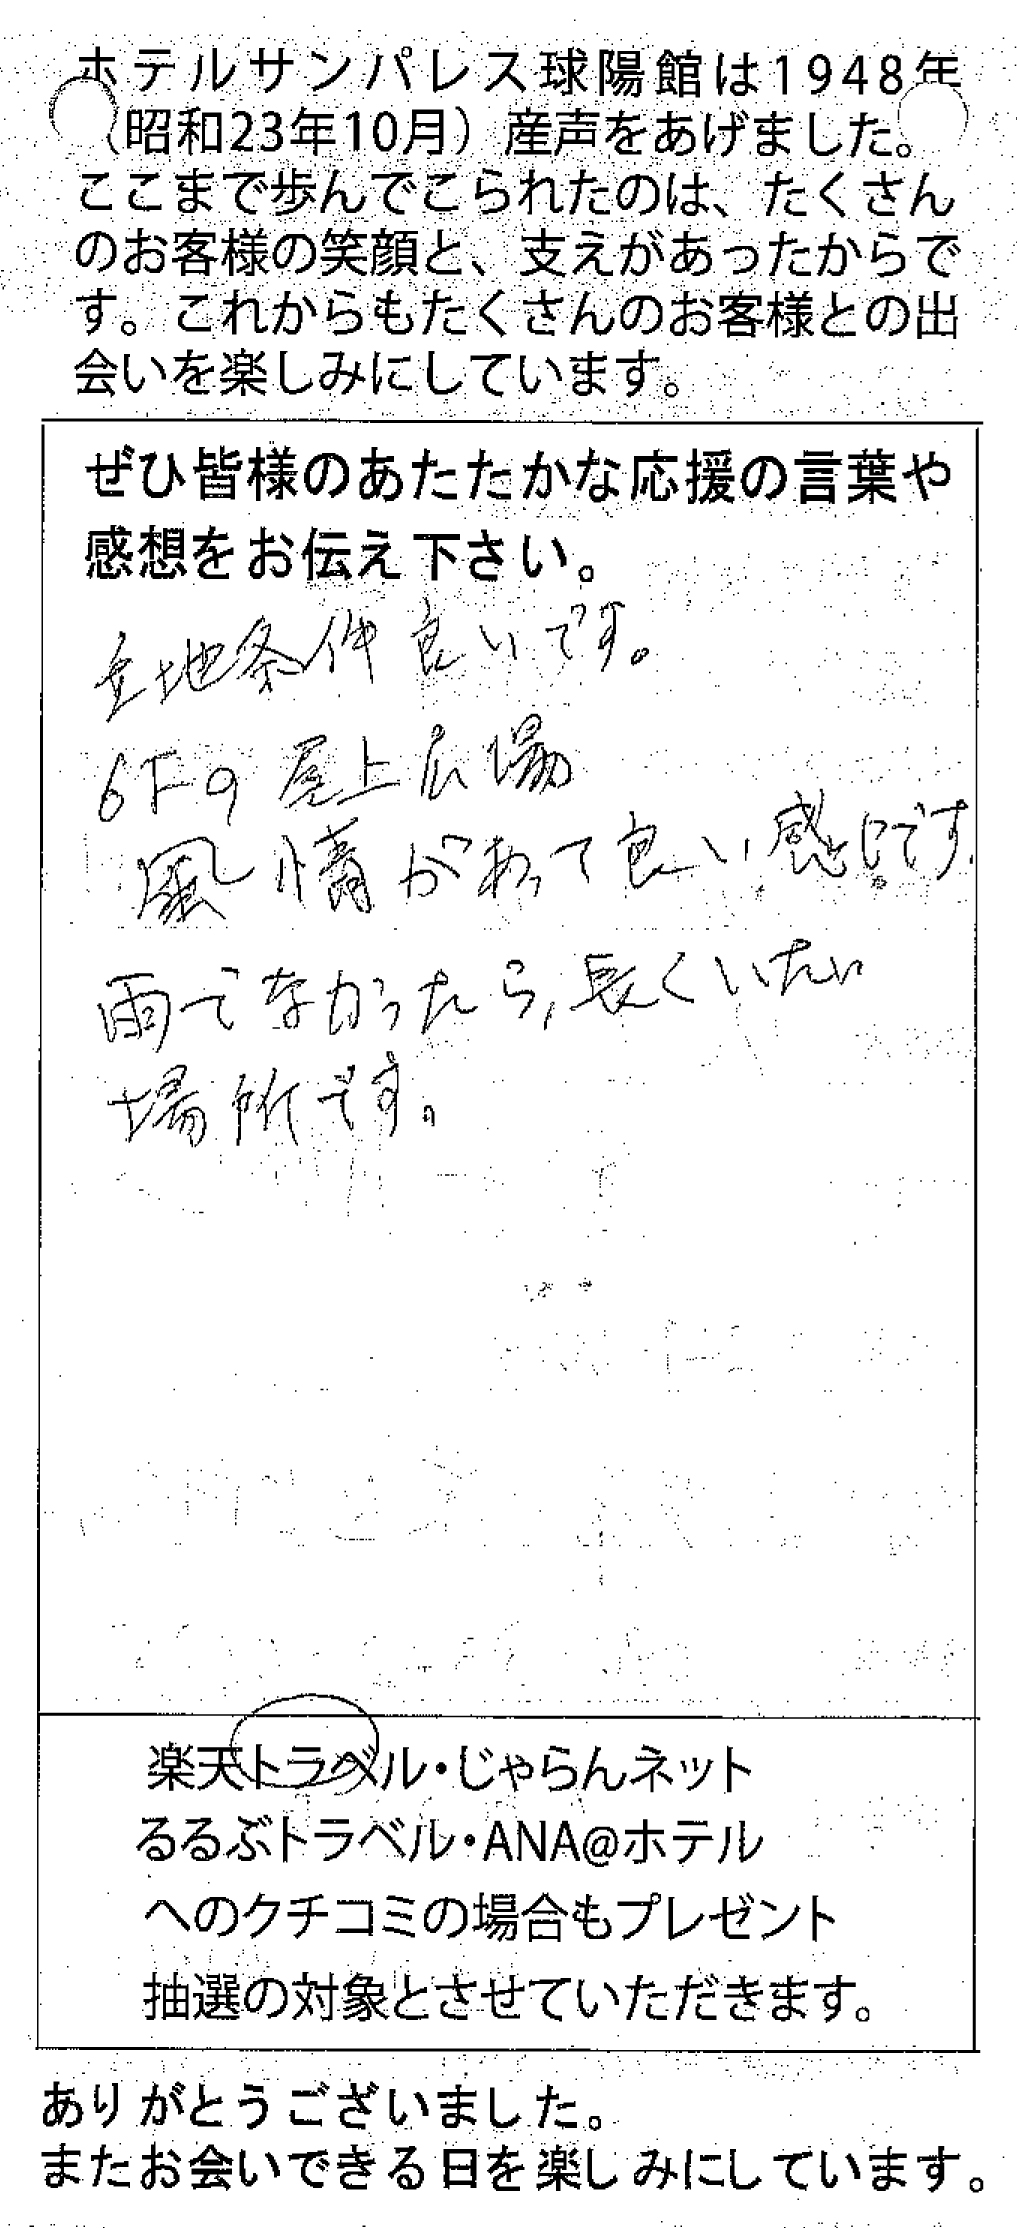 ホテルサンパレス球陽館は1948年
（昭和23年10月）産声をあげました。
ここまで歩んでこられたのは、たくさん
のお客様の笑顔と、支えがあったからで
す。これからもたくさんのお客様との出
会いを楽しみにしています。
ぜひ皆様のあたたかな応援の言葉や
感想をお伝え下さい。
立地条件良いです。
6Fの屋上広場
風情があって良い感じです。
雨でなかったら,長くいたい
場所です。
楽天トラベル・じゃらんネット
るるぶトラベル・ANA@ホテル
へのクチコミの場合もプレゼント
抽選の対象とさせていただきます。
ありがとうございました。
またお会いできる日を楽しみにしています。